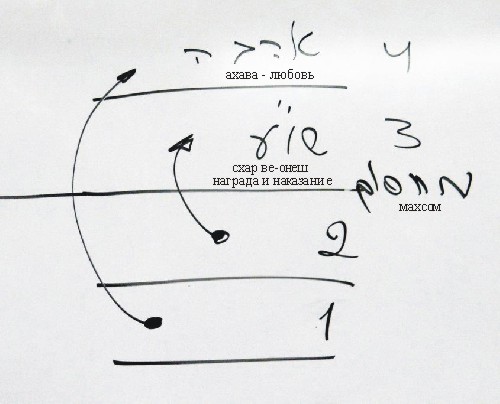 אהבה 4
ахава - любовь
שו"ע 3
схар ве-онеш
награда и наказание
מחסום
махсом
2
1